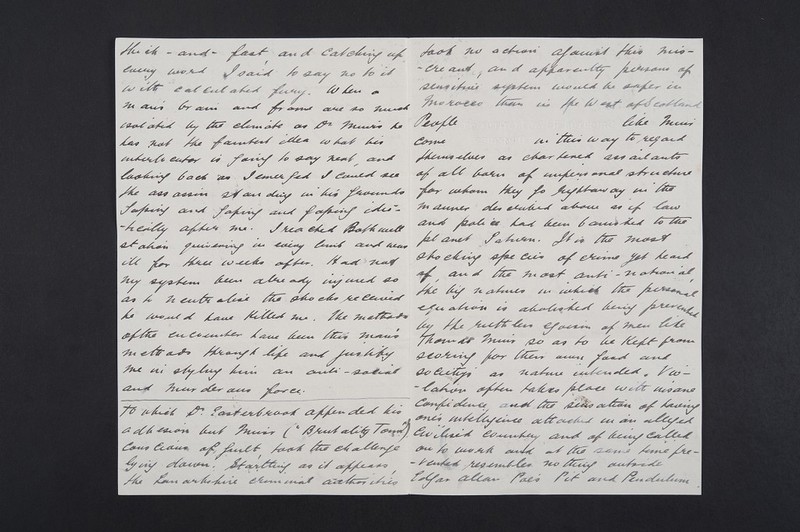 thick-and-fast and catching up
every word I said to say no to it
with calculated fury. When a
man's brain and frame are so much
isolated by the climate as Dr Muir's he
has not the faintest idea what his
interlocutor is going to say next, and
looking back as I emerged I could see
the assassin standing in his grounds
gaping and gaping and gaping idio-
-tically after me. I reached Bothwell
station quivering in every limb and was
ill for three weeks after. Had not
my system been already injured so
as to neutralise the shocks received
he would have killed me. The methods
of the encounter have been this man's
methods through life and justify
me in styling him an anti-social
and murderous force.
To which Dr. Easterbrook appended his
adhesion but Muir ("Brutality Tom")
conscious of guilt took the challenge
lying down. Startling as it appears
the Lanarkshire criminal authorities
took no action against this mis-
-creant, and apparently persons of
sensitive system would be safer in
Morocco than in the West of Scotland
People like Muir
come in this way to regard
themselves as chartered assailants
of all born of impersonal structure
for whom they go rightaway in the
manner described above as if law
and police had been banished to the
planet Saturn. It is the most
shocking species of crime yet heard
of, and the most anti-national,
the big natures in which the personal
equation is abolished being prevented
by the ruthless egoism of men like
Thomas Muir so as to be kept from
scoring for their own good and
society's as nature intended. Vio-
-lation often takes place with insane
confidence and the sensation of having
one's intelligence attacked in an alleged
civilised country and of being called
on to work and at the same time pre-
-vented resembles nothing outside
Edgar Allan Poe's Pit and Pendulum.